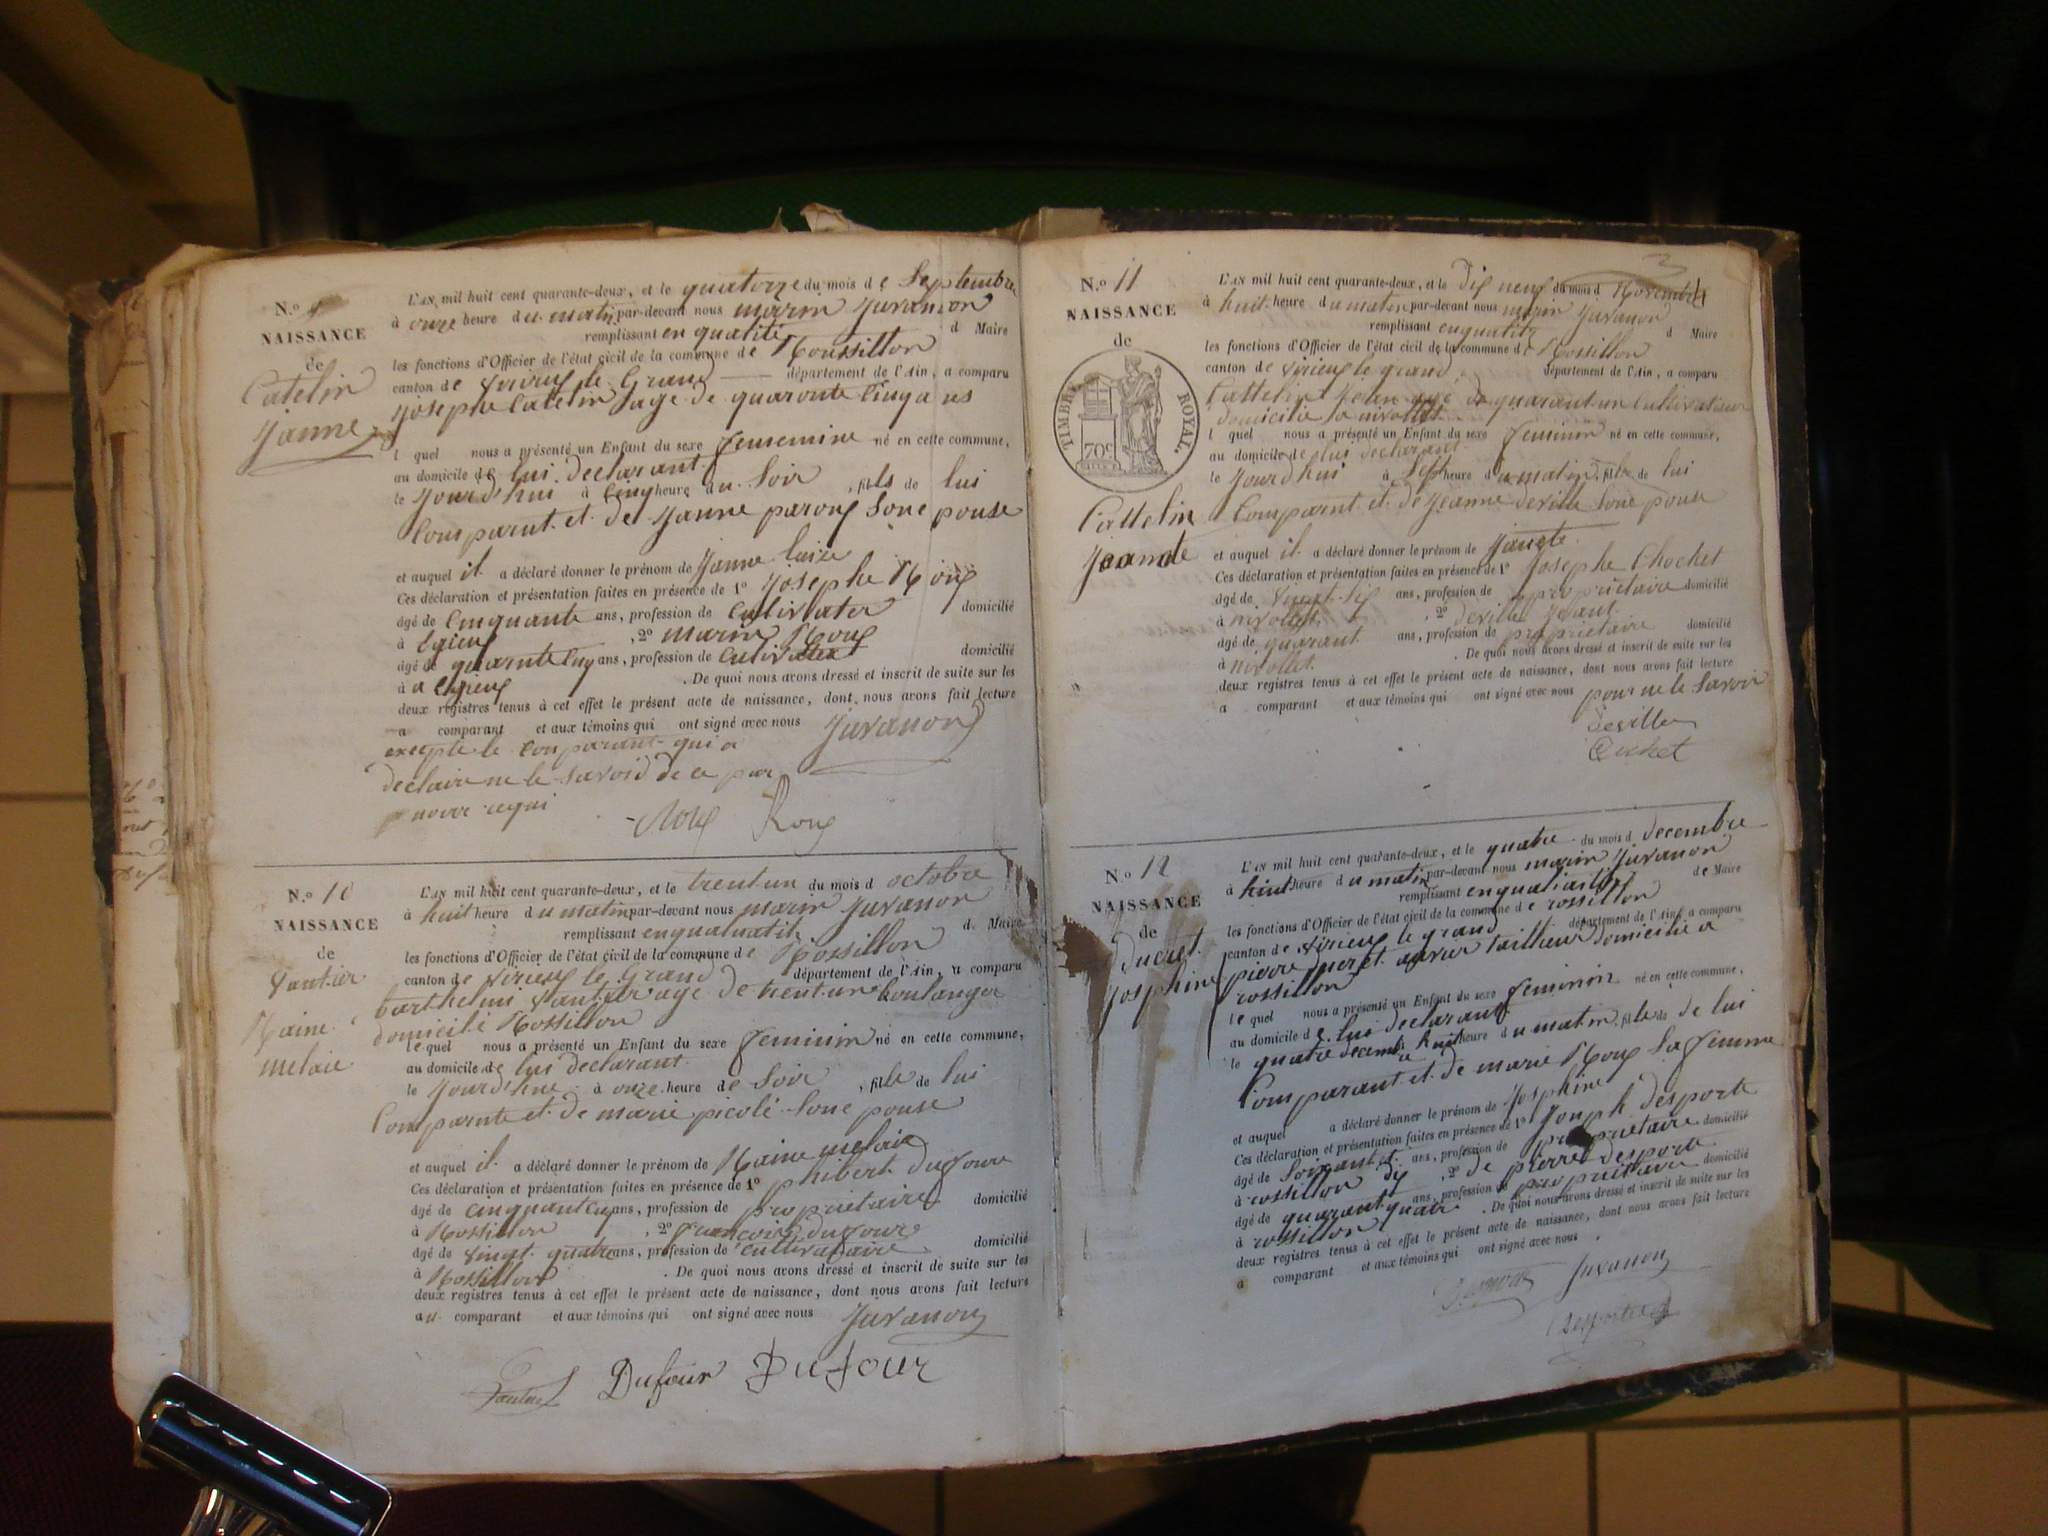 N.º 9
NAISSANCE
de
Catelin
Janne
L'AN mil huit cent quarante-deux, et le quatorze du mois de Septembre
à onze heure du matin par-devant nous marin Juvanon
remplissant en qualité d Maire
les fonctions d'Officier de l'état civil de la commune de Roussillon
canton de virieux le Grand département de l'Ain, a comparu
Josephe Catelin age de quaronte Cinq ans
l quel nous a présenté un Enfant du sexe femeinine né en cette commune,
au domicile de lui declarant
le Jourd'hui à Cinq heure du Soir , fills de lui
Comparut et de Janne paroux Sone pouse
et auquel il a déclaré donner le prénom de Janne luise
Ces déclaration et présentation faites en présence de 1º Josephe Roux
âgé de Cinquante ans, profession de Cultivater domicilié
à Egieux , 2º marin Roux
âgé de quarnte Cinq ans, profession de Cultivateur domicilié
à a Egieux . De quoi nous avons dressé et inscrit de suite sur les
deux registres tenus à cet effet le présent acte de naissance, dont nous avons fait lecture
a comparant et aux témoins qui ont signé avec nous Juvanon
exepte le Comparant qui a
declaire ne le Savoir de ce par
nous requi
Roux Roux
N.º 10
NAISSANCE
de
Vantier
Raine
melaie
L'AN mil huit cent quarante-deux, et le trentun du mois d octobre
à huit heure du matin par-devant nous marin Juvanon
remplissant d. Maire
les fonctions d'Officier de l'état civil de la commune de Rossillon
canton de virieux le Grand département de l'Ain, a comparu
barthelmi Vantier age de trentun boulanger
domicilé Rossillon
le quel nous a présenté un Enfant du sexe feminin né en cette commune,
au domicile de lui declarant
le Jourd'hue à onze heure de Soir , fille de lui
Comparnte et de marie picolé Sone pouse
et auquel il a déclaré donner le prénom de Raine melaie
Ces déclaration et présentation faites en présence de 1º phibert dufoure
âgé de cinquantcinq ans, profession de propriétaire domicilié
à Rossillon , 2º francois dufoure
âgé de vingt quatre ans, profession de cultivataire domicilié
à Rossillon . De quoi nous avons dressé et inscrit de suite sur les
deux registres tenus à cet effet le présent acte de naissance, dont nous avons fait lecture
au comparant et aux témoins qui ont signé avec nous Juvanon
Dufour Dufour
3
N.º 11
NAISSANCE
de
TIMBRE ROYAL.
70c
Cattelin
L'AN mil huit cent quarante-deux, et le Dix neuf du mois d Novembre
à huit heure du matin par-devant nous marin Juvanon
remplissant enqualité d Maire
les fonctions d'Officier de l'état civil de la commune de Rossillon
canton de virieux le grand département de l'Ain, a comparu
Cattelin Jean agé de quarant un Cultivateur
domicilié a nivollet
l quel nous a présenté un Enfant du sexe feminin né en cette commune,
au domicile de lui declarant
le Jourd'hui à Sept heure du matin, fille de lui
Comparnt et de Jeanne deville Sone pouse
et auquel il a déclaré donner le prénom de
Ces déclaration et présentation faites en présence de 1º Josephe Chochet
âgé de vingt six ans, profession de propriétaire domicilié
à nivollet , 2º deville Jeant
âgé de quarant ans, profession de propriétaire domicilié
à nivollet . De quoi nous avons dressé et inscrit de suite sur les
deux registres tenus à cet effet le présent acte de naissance, dont nous avons fait lecture
a comparant et aux témoins qui ont signé avec nous pour ne le Savoir
Deville
N.º 12
NAISSANCE
de
Ducret
Josphine
L'AN mil huit cent quarante-deux, et le quatre du mois d decembre
à huit heure du matin par-devant nous marin Juvanon
remplissant de Maire
les fonctions d'Officier de l'état civil de la commune de rossillon
canton de virieux le grand département de l'Ain, a comparu
pierre Ducret ouvrier tailleur domicilié a
rossillon
le quel nous a présenté un Enfant du sexe feminin né en cette commune,
au domicile de lui declarant
le quatre decemb huit heure du matin, fille de de lui
Comparant et de marie Roux Sa femme
et auquel a déclaré donner le prénom de Josphine
Ces déclaration et présentation faites en présence de 1º Jouph desporte
âgé de Soixant et ans, profession de propriétaire domicilié
à rossillon dix , 2º de pierre desporte
âgé de quarant quatr ans, profession de propriétaire domicilié
à rossillon . De quoi nous avons dressé et inscrit de suite sur les
deux registres tenus à cet effet le présent acte de naissance, dont nous avons fait lecture
a comparant et aux témoins qui ont signé avec nous
Juvanon